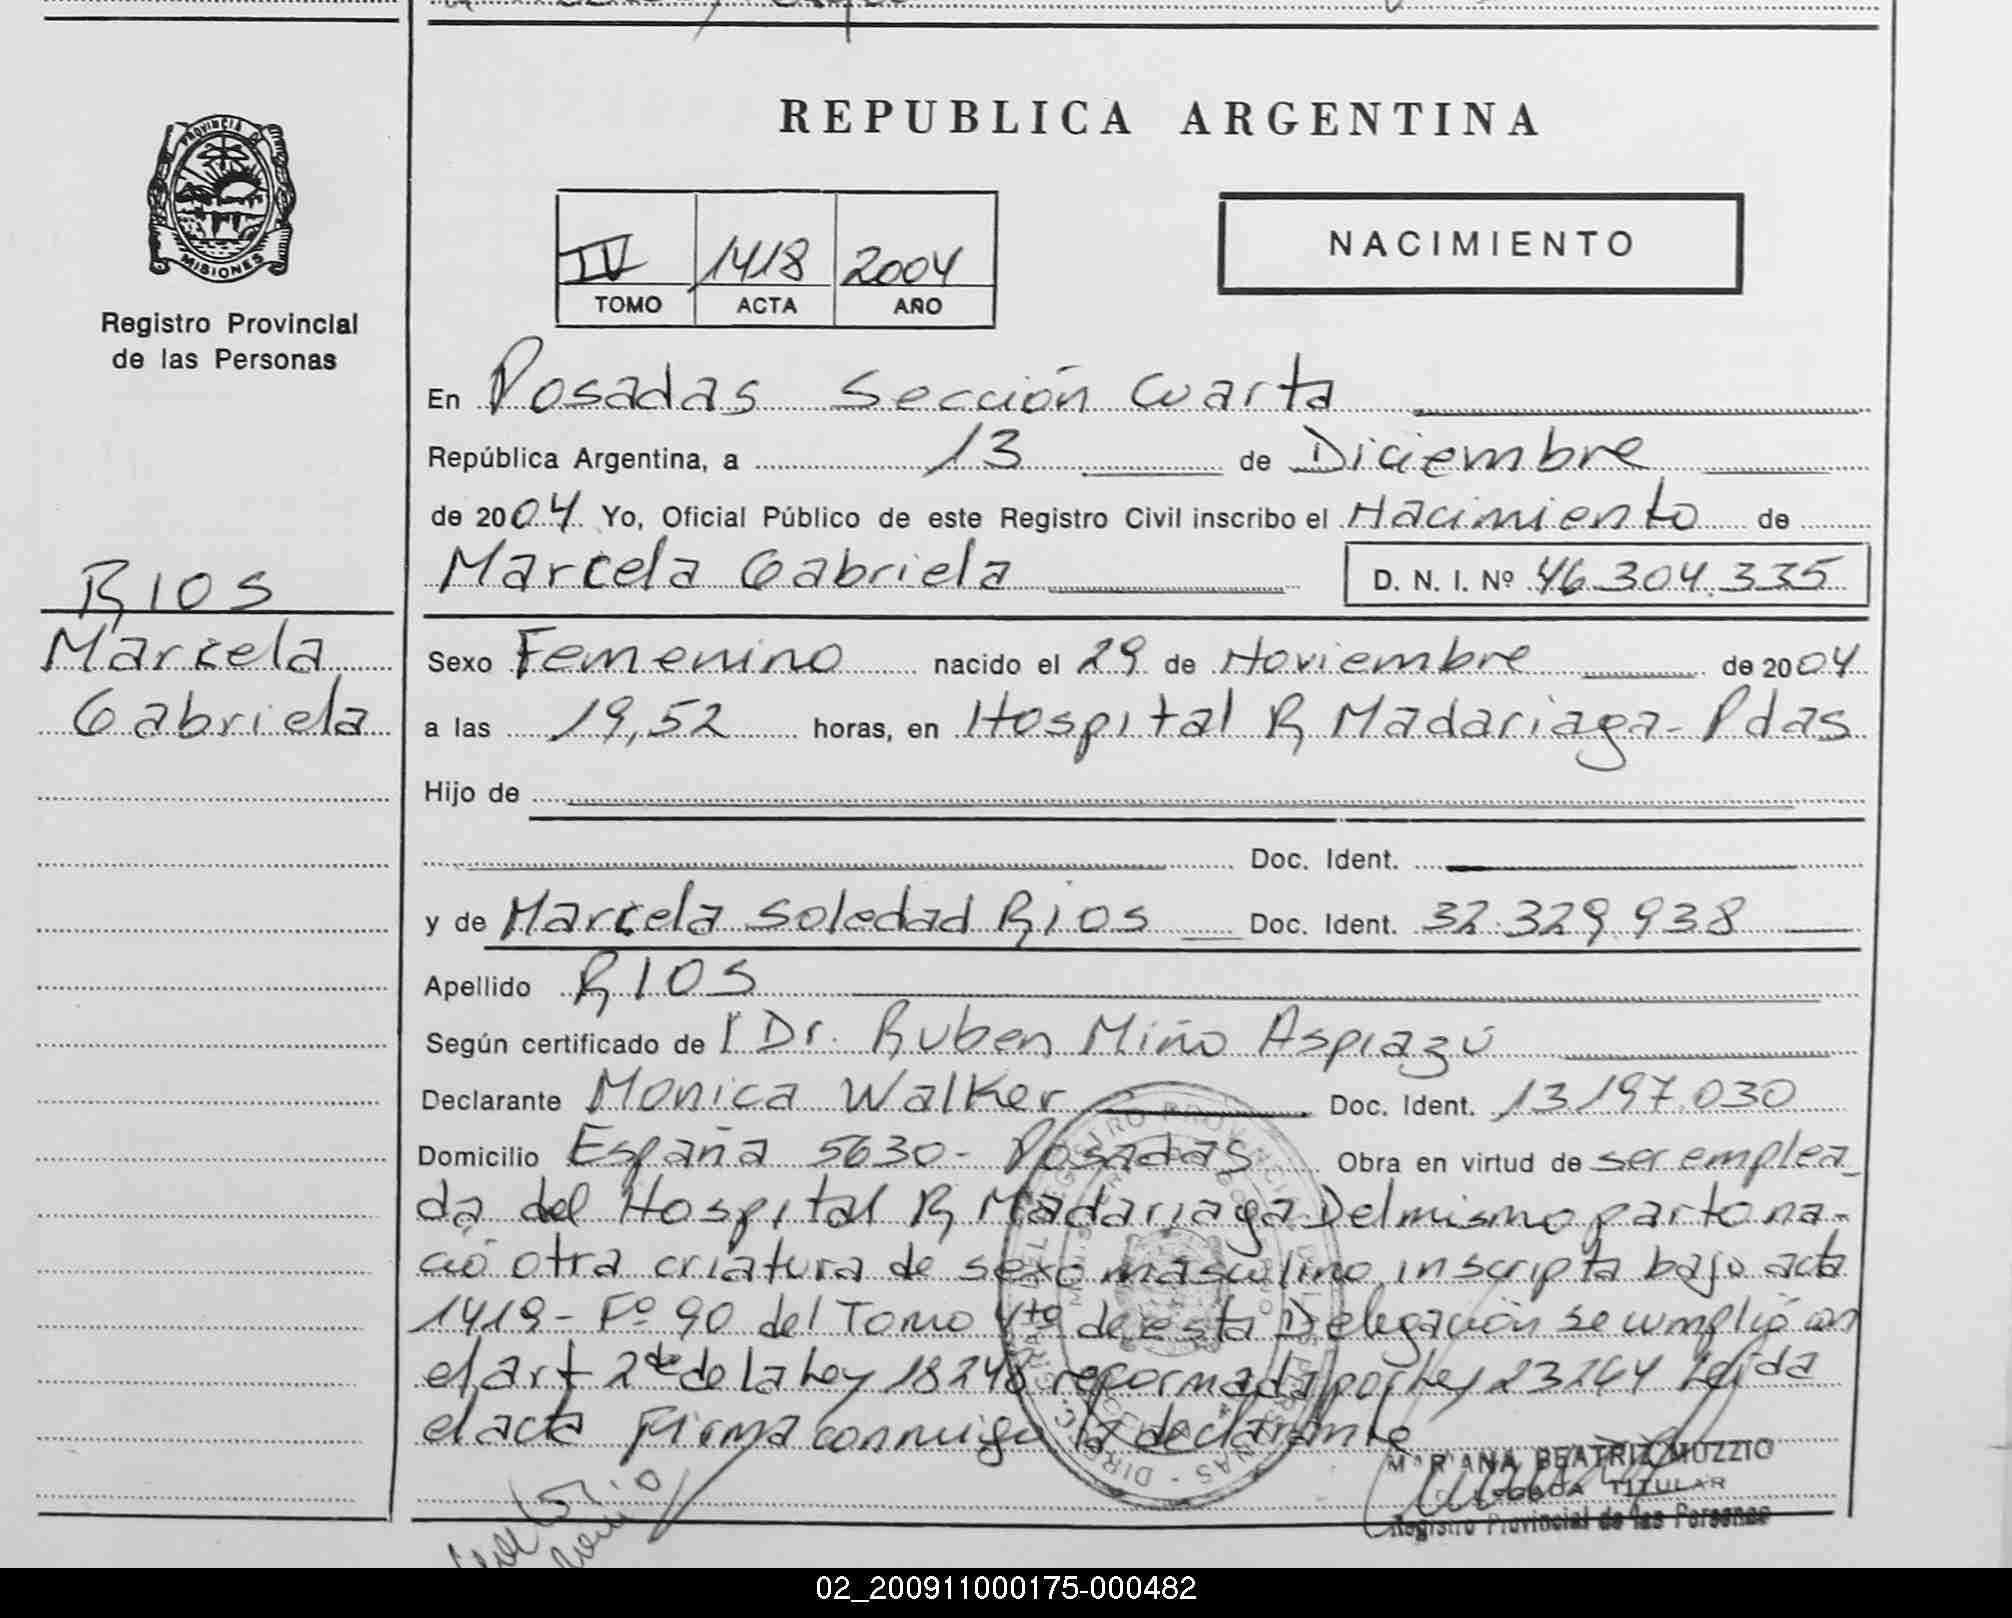 REPUBLICA ARGENTINA
PROVINCIA DE
MISIONES
Registro Provincial
de las Personas
IV 1418 2004
TOMO ACTA AÑO
NACIMIENTO
En Posadas Sección Cuarta
República Argentina, a 13 de Diciembre
de 2004 Yo, Oficial Público de este Registro Civil inscribo el Nacimiento de
Marcela Gabriela D. N. I. Nº 46.304.335
RIOS
Marcela
Gabriela
Sexo Femenino nacido el 29 de Noviembre de 2004
a las 19,52 horas, en Hospital R Madariaga - Pdas
Hijo de
Doc. Ident.
y de Marcela Soledad Rios Doc. Ident. 32.329.938
Apellido RIOS
Según certificado de l Dr. Ruben Miño Aspiazú
Declarante Monica Walker Doc. Ident. 13.197.030
Domicilio España 5630 - Posadas Obra en virtud de ser emplea-
da del Hospital R Madariaga Del mismo parto na-
ció otra criatura de sexo masculino, inscripta bajo acta
1419 - Fº 90 del Tomo 4to de esta Delegación se cumplió con
el art 2do de la Ley 18248 reformada por Ley 23264 Leída
el acta Firma conmigo la declarante
MARIANA BEATRIZ MUZZIO
DELEGADA TITULAR
Registro Provincial de las Personas
02_200911000175-000482